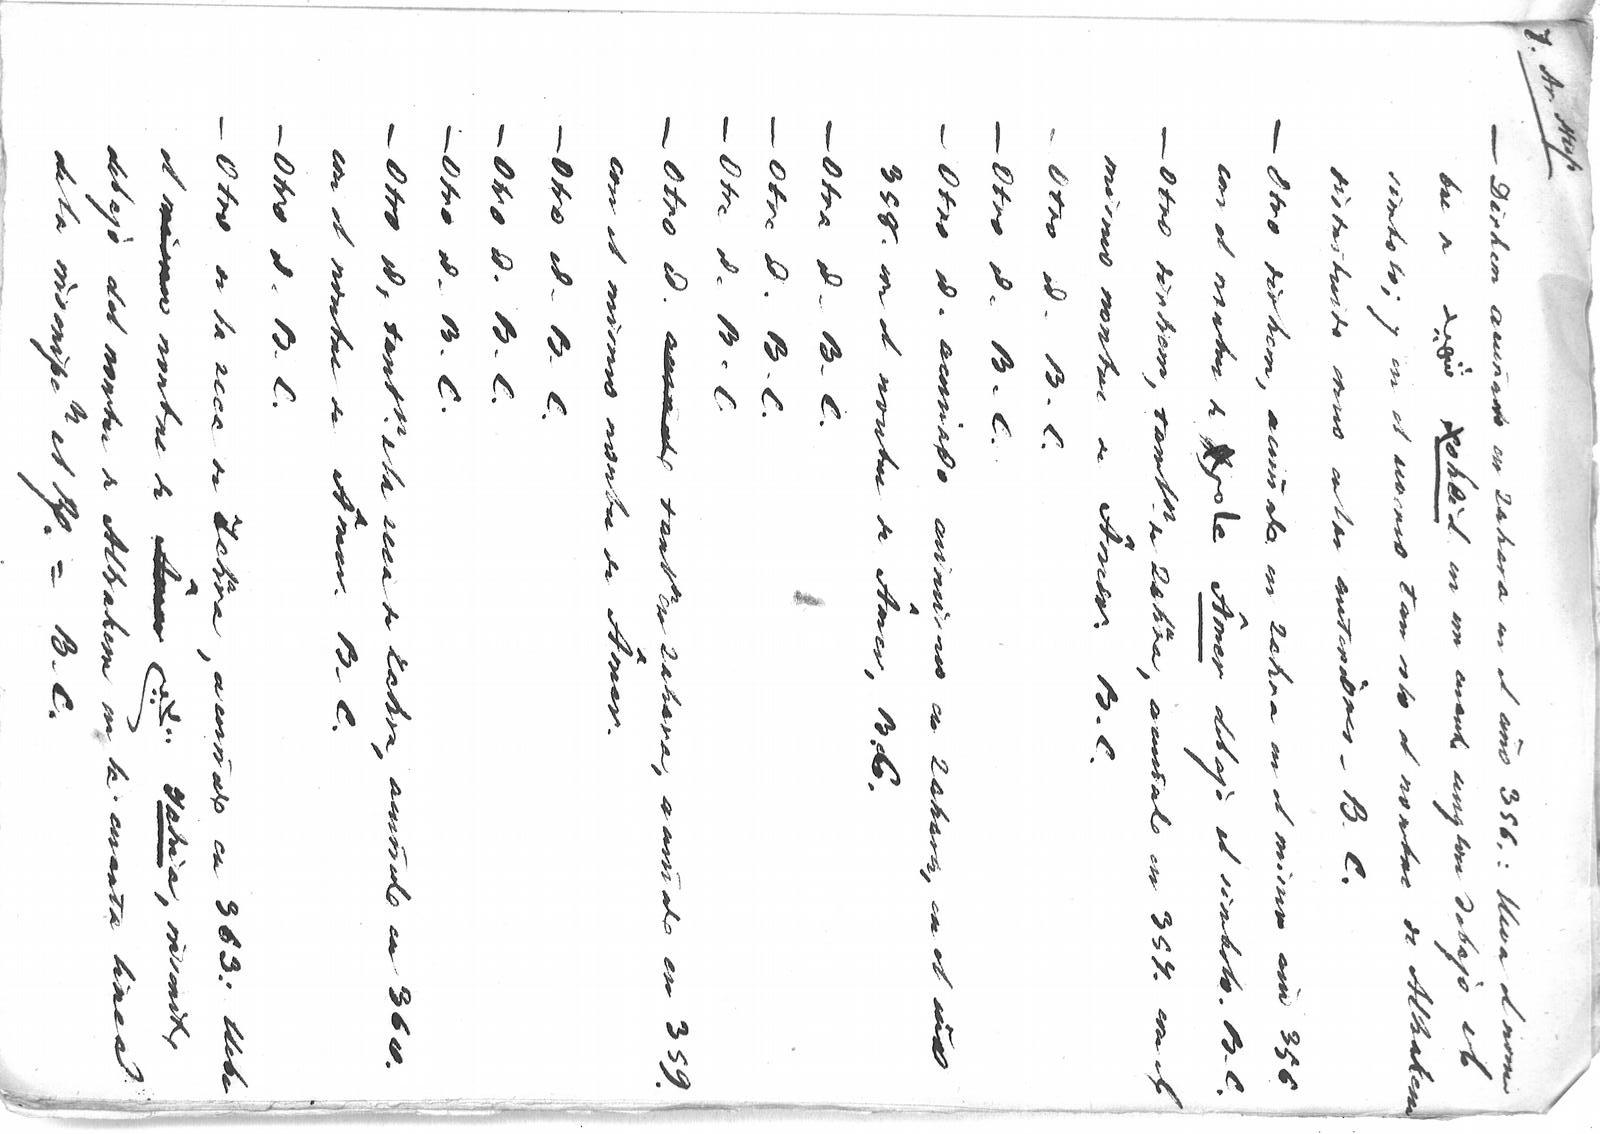 7. Ar. Hisp
— Dirhem acuñado en Zahara en el año 356.: lleva el nom-
bre de شهيد Xohàid en un cuarto renglon debajo el
simbolo; y en el reverso tan solo el nombre de Alhakem
distribuido como en los anteriores - B. C.
— Otro dirhem, acuñado en Zahra en el mismo año 356
con el nombre de solo Âmer debajo el simbolo. B. C.
— Otro dirhem, tambn de Zahra, acuñado en 357. con el
mismo nombre de Âmer. B. C.
- Otro d. B. C.
— Otro d. B. C.
— Otro d. acuñado asimismo en Zahara, en el año
358. con el nombre de Âmer, B. C.
— Otra d. B. C.
— Otra d. B. C.
— Otra d. B. C.
— Otro d. tambn en Zahara, acuñado en 359.
con el mismo nombre de Âmer.
— Otro d. B. C.
— Otro d. B. C.
— Otro d. B. C.
— Otro d, tambn de la zeca de Zahra, acuñado en 360.
con el nombre de Âmer. B. C.
— Otro d. B. C.
— Otro de la zeca de Zahra, acuñado en 363: lleva
el nombre de يحيى Yahia, inscrito
debajo del nombre de Alhakem en la cuarta linea
de la B. C.